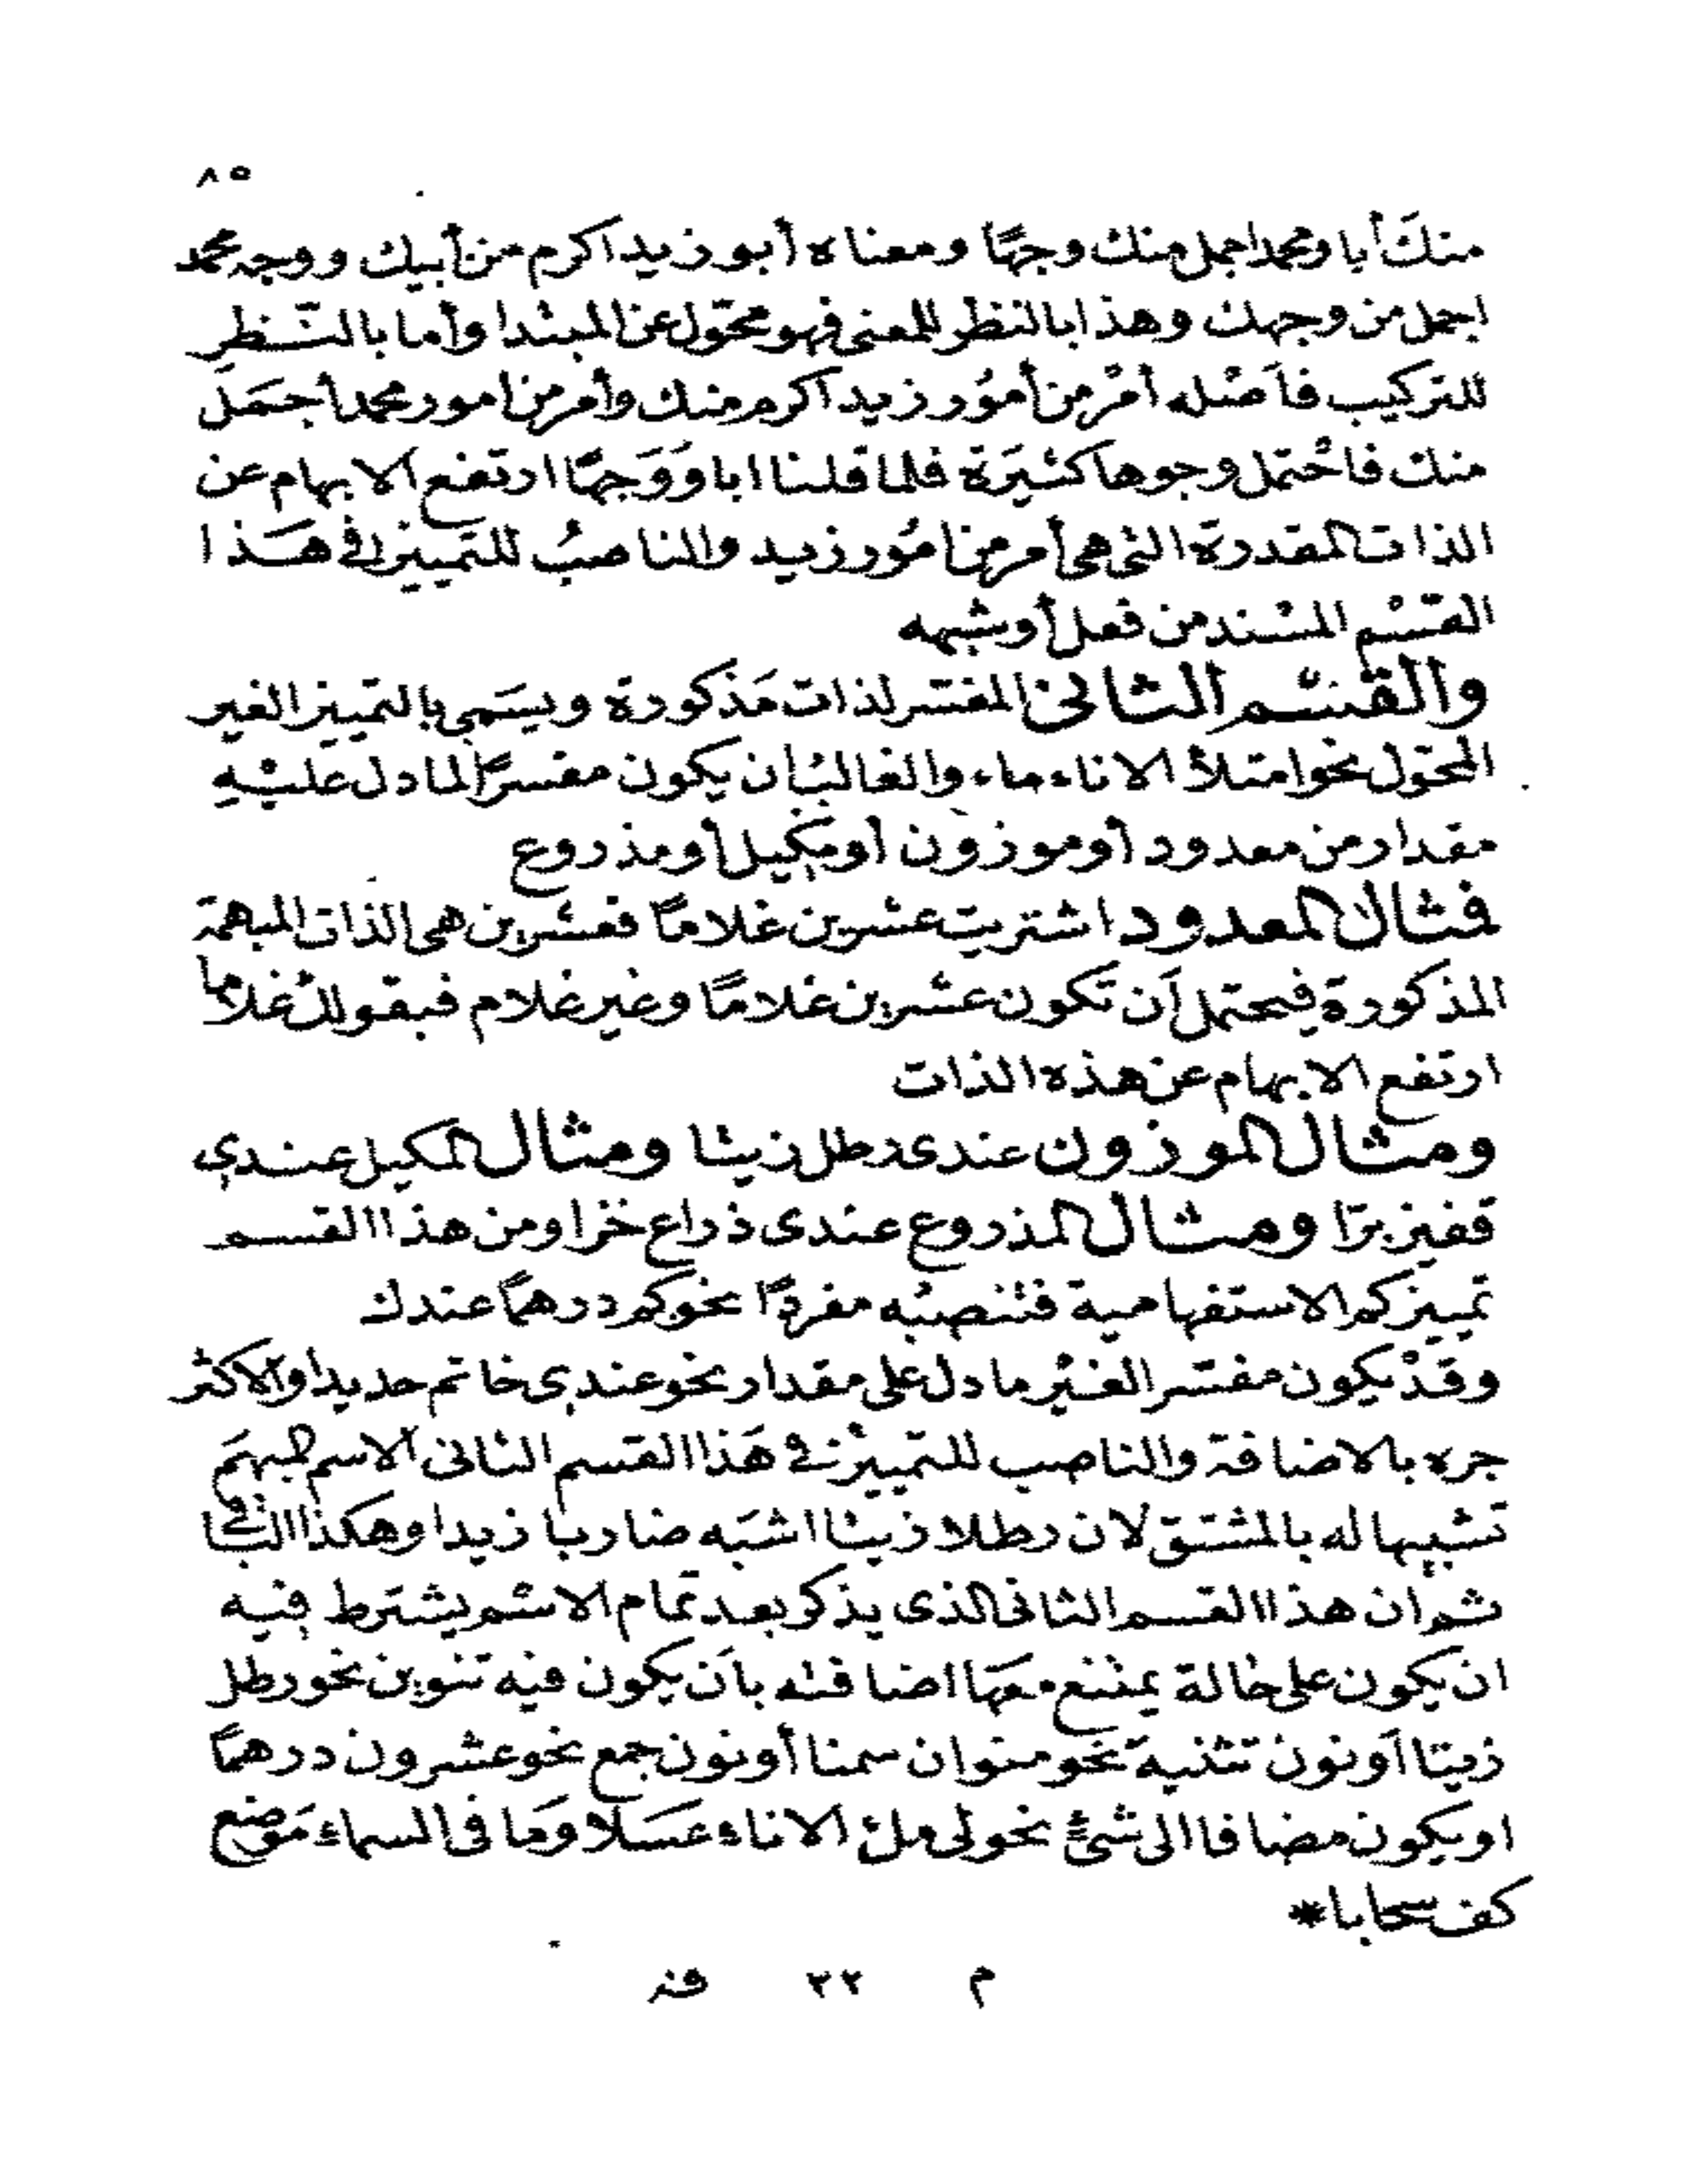 ٨٥
منكَ أبا ومحمد اجمل منك وجهًا ومعناه أبو زيد اكرم من أبيك ووجه محمد
اجمل من وجهك وهذا بالنظر للمعنى فهو محوّل عن المبتدا وأما بالنّظرِ
للتركيب فأصْله أمْر من أموُر زيد اكرم منك وأمر من امور محمد أجمَل
منك فاحْتمل وجوها كثيَرة فلما قلنا ابا وَوَجهًا ارتفع الابهام عن
الذات المقدرة التى هى أمر من امُور زيد والناصبُ للتمييز فى هَذا
القسْم المسْند من فعل أو شبهه
والقسْم الثانى المفسر لذات مَذكورة ويسَمى بالتمييز الغير
المحوّل نحو امتلأ الاناء ماء والغالبُ أن يكون مفسرًا لما دل عليْهِ
مقدار من معدود أو موزون أو مكيل أو مذروع
فمثال المعدود اشتريت عشرين غلامًا فعشرين هى الذات المبهمة
المذكورة فيحتمل أن تكون عشرين غلامًا وغير غلام فبقولك غلامًا
ارتفع الابهام عن هذه الذات
ومثال الموزون عندى رطل زيتا ومثال المكيل عندى
قفيز برّا ومثال المذروع عندى ذراع خزا ومن هذا القسم
تمييز كم الاستفهامية فتنصبُه مفردًا نحو كم درهمًا عندك
وقدْ يكون مفسّر الغيْر ما دل على مقدار نحو عندى خاتم حديدا والاكثر
جره بالاضافة والناصب للتمييْز فى هَذا القسم الثانى الاسم المبهَم
تشبيها له بالمشتق لان رطلا زيتا اشبَه ضاربا زيدا وهكذا الباقى
ثم ان هذا القسم الثانى الذى يذكر بعد تمام الاسْم يشترط فيه
ان يكون على حالة يمتنع معَها اضافته بأن يكون فيه تنوين نحو رطل
زيتا أو نون تثنية نحو منوان سمنا أو نون جمع نحو عشرون درهمًا
او يكون مضافا الى شئ نحو لى ملئ الاناء عسَلا وما فى السماء مَوضع
كف سحابا *
م ٢٢ فنه